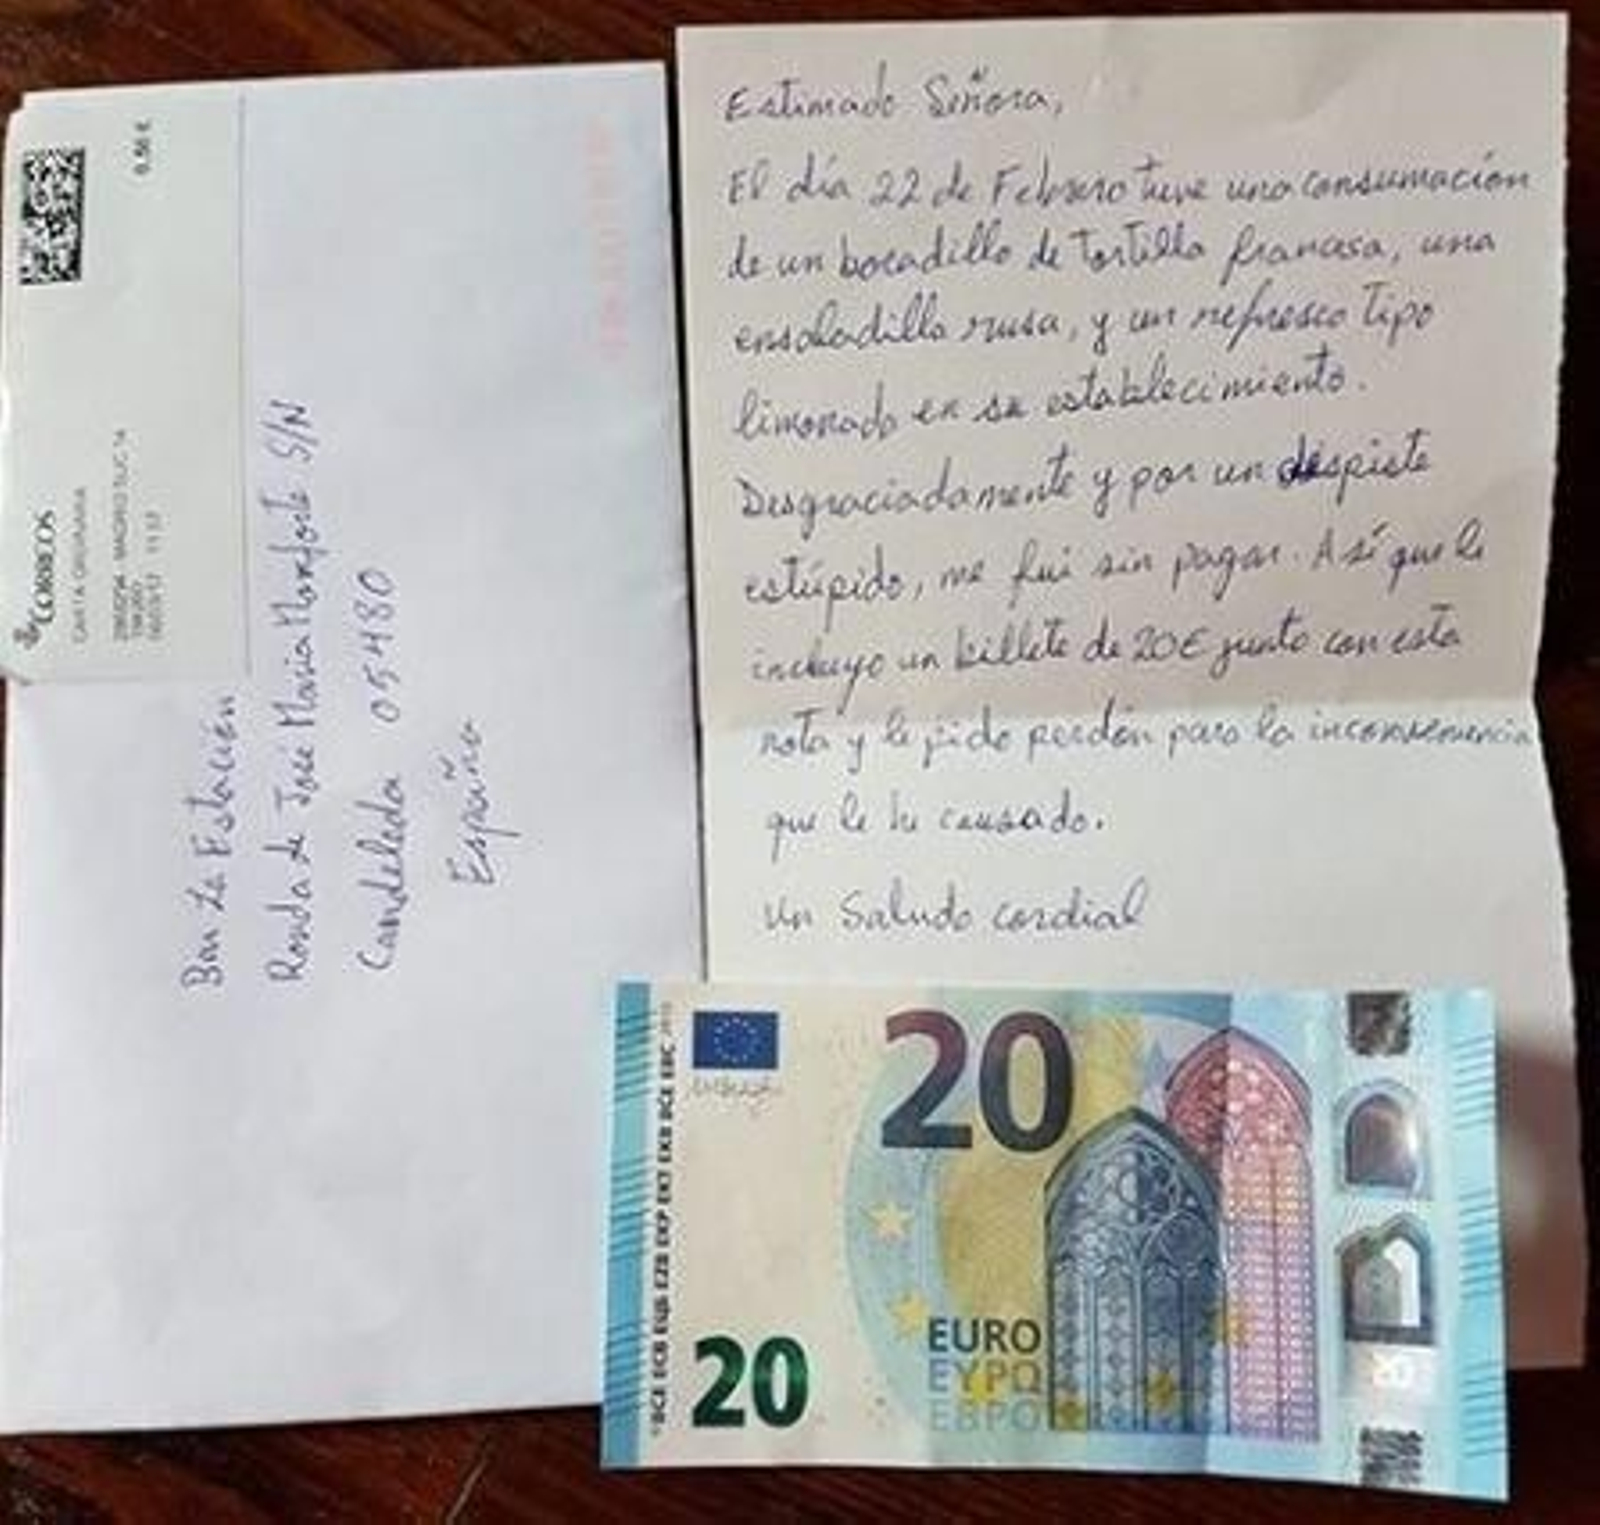 CORREOS
CARTA ORDINARIA
0.60 €
Bar La Estación
Ronda de José Maria Monforte S/N
Candeleda 05480
España
Estimado Señora,
El día 22 de Febrero tuve una consumación
de un bocadillo de tortilla francesa, una
ensaladilla rusa, y un refresco tipo
limonada en su establecimiento.
Desgraciadamente y por un despiste
estúpido, me fui sin pagar. Así que le
incluyo un billete de 20€ junto con esta
nota y le pido perdón para la inconveniencia
que le he causado.
Un Saludo cordial
20
20
EURO
ΕΥΡΩ
ЕВРО